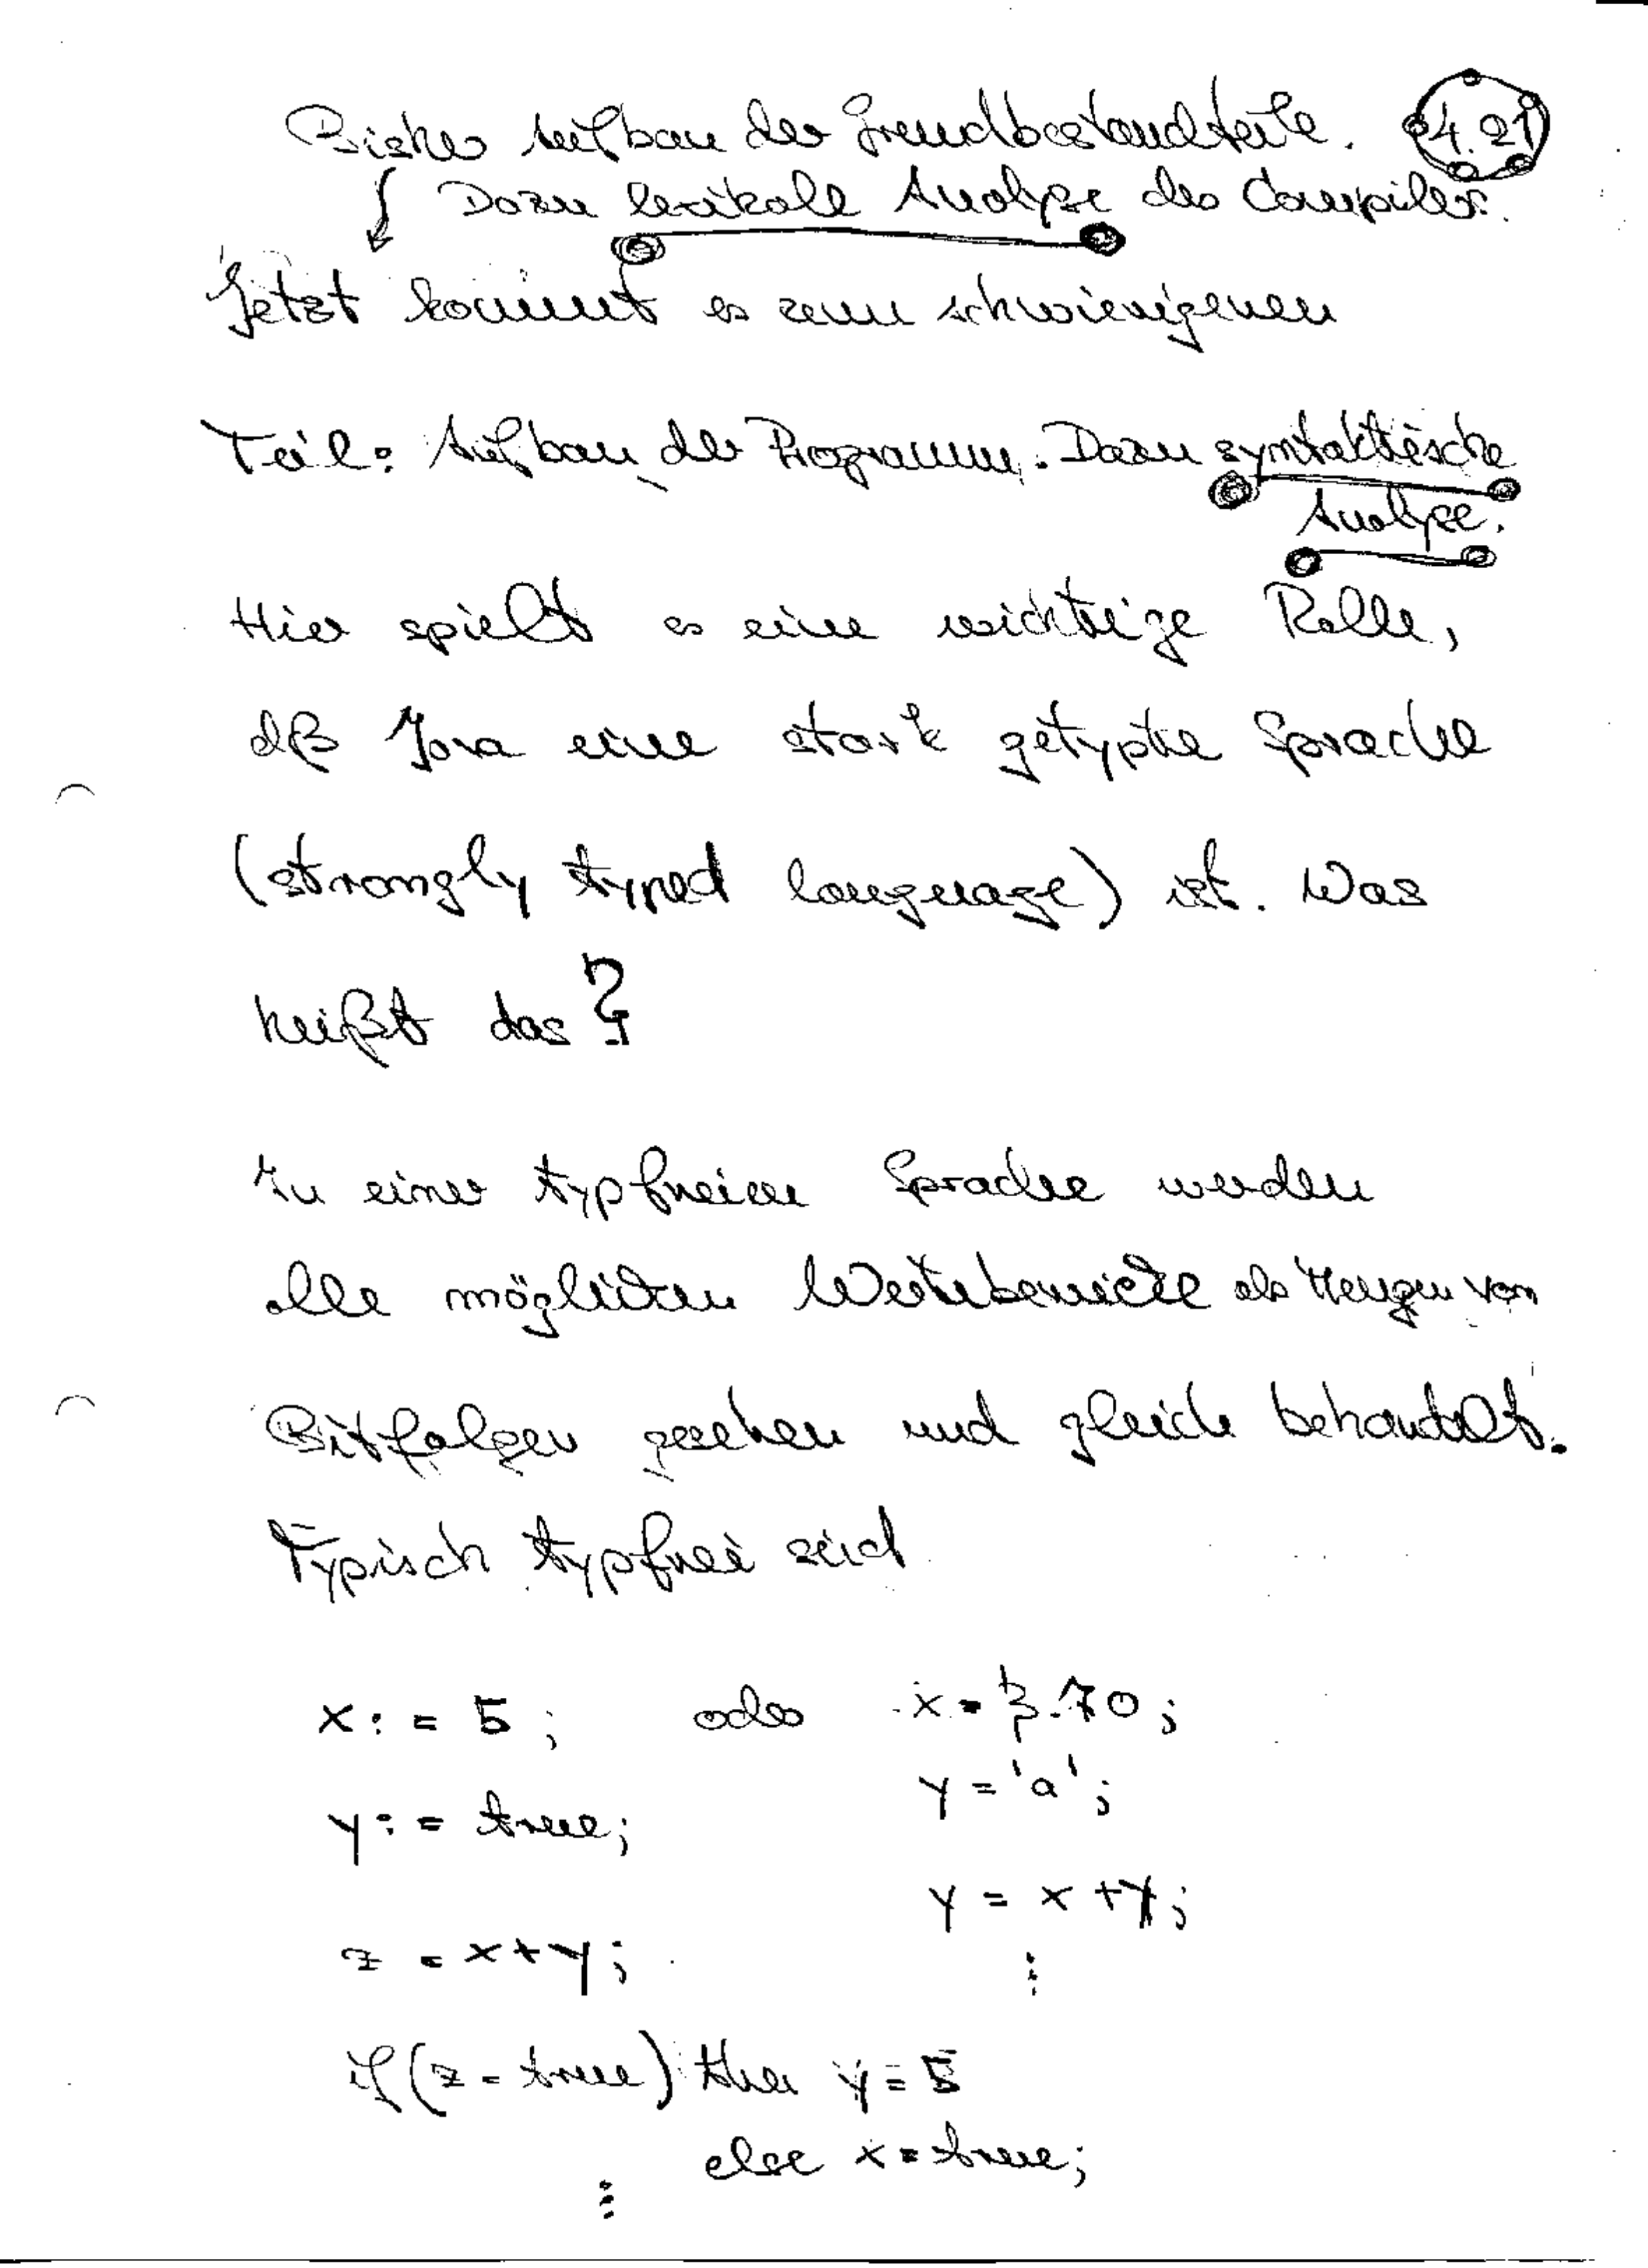 Bisher Aufbau der Grundbestandteile. 4.21
Dazu lexikale Analyse des Compilers.
Jetzt kommt es zum schwierigeren
Teil: Aufbau der Programme. Dazu syntaktische
Analyse.
Hier spielt es eine wichtige Rolle,
dß Java eine stark getypte Sprache
(strongly typed language) ist. Was
heißt das?
In einer typfreien Sprache werden
alle möglichen Wertebereiche als Mengen von
Bitfolgen gesehen und gleich behandelt.
Typisch typfrei sind
x := 5; oder x = 3.70;
y = 'a';
y := true;
y = x + y;
z = x + y; ⋮
if (z = true) then y = 5
else x = true;
⋮